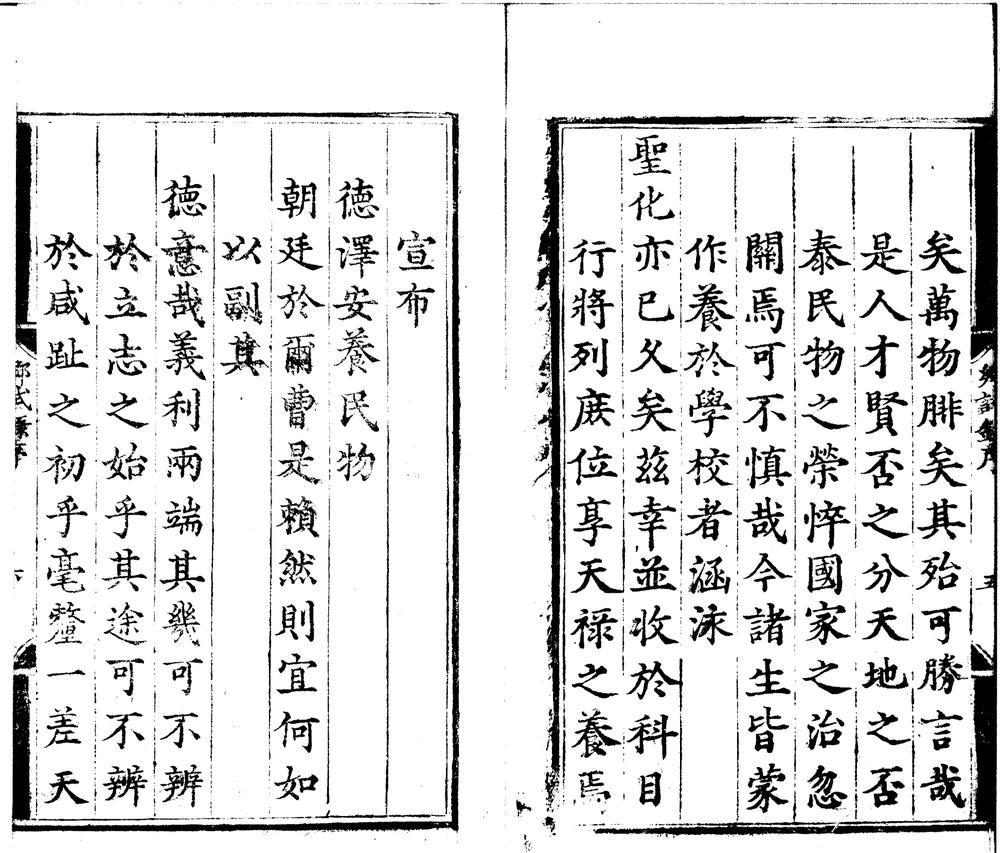 矣萬物腓矣其殆可勝言哉
是人才賢否之分天地之否
泰民物之榮悴國家之治忽
關焉可不慎哉今諸生皆蒙
作養於學校者涵泳
聖化亦已久矣茲幸並收於科目
行將列庶位享天祿之養焉
宣布
德澤安養民物
朝廷於爾曹是賴然則宜何如
以副其
德意哉義利兩端其幾可不辨
於立志之始乎其途可不辨
於咸趾之初乎毫釐一差天
鄉試錄序
五
鄉試錄序
六